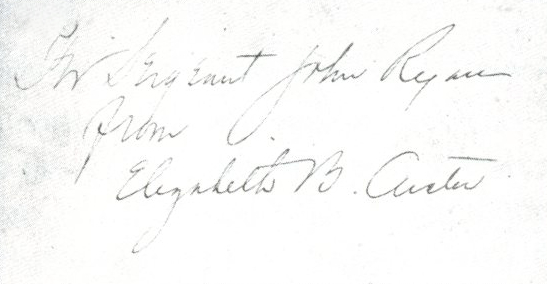 For Sergeant John Ryan
from
Elizabeth B. Custer